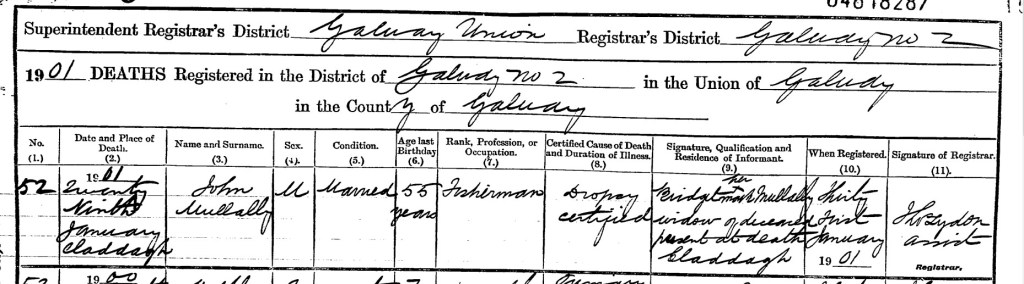 04618287
Superintendent Registrar's District Galway Union Registrar's District Galway No 2
1901 DEATHS Registered in the District of Galway No 2 in the Union of Galway
in the County of Galway
No. (1.) Date and Place of Death. (2.) Name and Surname. (3.) Sex. (4). Condition. (5.) Age last Birthday (6.) Rank, Profession, or Occupation. (7.) Certified Cause of Death and Duration of Illness. (8.) Signature, Qualification and Residence of Informant. (9.) When Registered. (10.) Signature of Registrar. (11).
52
1901
Twenty
Ninth
January
Claddagh
John
Mullally
M
Married
55
years
Fisherman
Dropsy
certified
her
Bridget mark Mullally
widow of deceased
present at death
Claddagh
Thirty
First
January
1901
Lydon
assist
Registrar.
53
1900